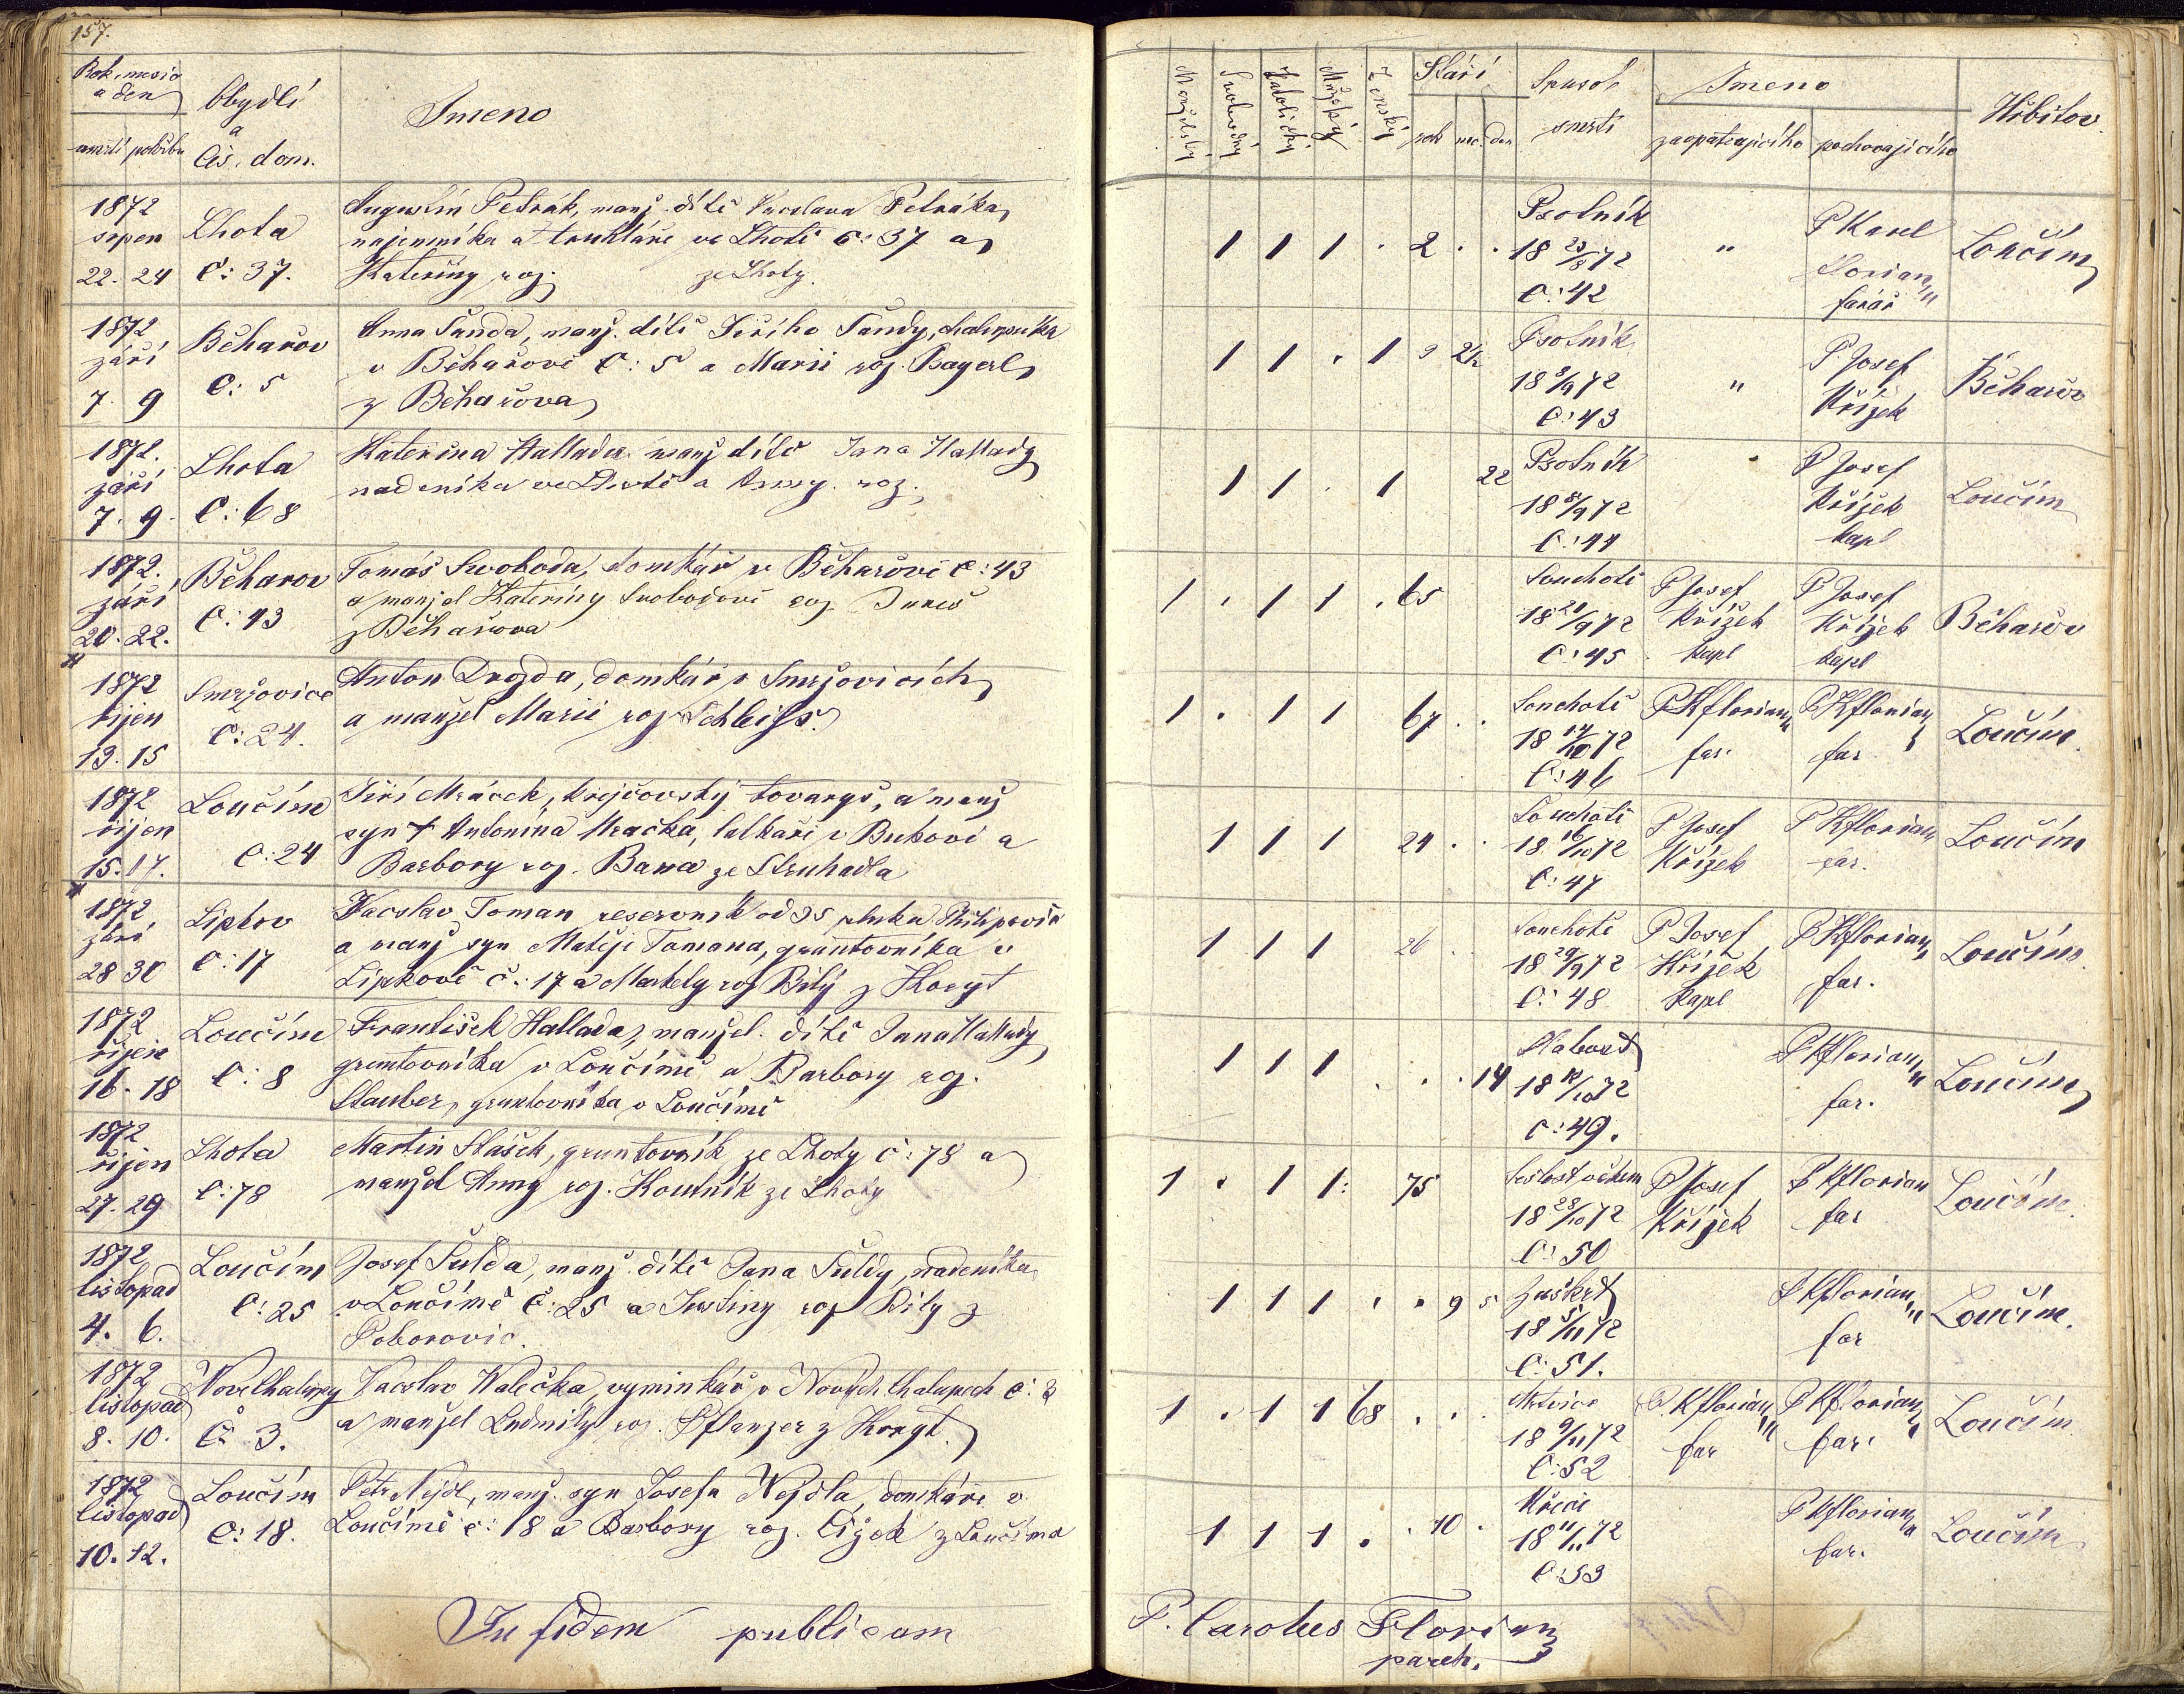 157.
Rok, mesíc
a den
úmrtí pohřbu
Obydlí
a
čis. dom.
Jmeno
1872
srpen
22. 24
Lhota
č: 37.
Augustin Petrák, manž. dítě Vacslava Petráka,
najemníka a truhláře ve Lhotě č: 37 a
Kateřiny roz. ze Lhoty.
1872
září
7. 9
Běhařov
č: 5
Anna Šanda, manž. dítě Jiřího Šandy, chalupníka
v Běhařově č: 5 a Marii roz. Bayerl
z Běhařova
1872.
září
7. 9.
Lhota
č: 68
Kateřina Hallada manž dítě Jana Hallady
nadeníka ve Lhotě a Anny. roz.
1872.
září
20. 22.
Běharov
č: 43
Tomáš Swoboda, domkář v Běhařově č: 43
a manžel Kateřiny Svobodové roz.
z Běhařova
1872
říjen
13. 15
Smržovice
č: 24.
Anton Drozda, domkář v Smržovicích
a manžel Marii roz. Schleiss.
1872
říjen
15. 17.
Loučím
č: 24
Jiří Mráček, krejčovský tovaryš, a manž
syn † Antonína Mračka, v Bukově a
Barbory roz. Bawa ze Struhadla
1872
září
28 30
Lipkov
č: 17
Vacslav Toman reservník od 35 pluku Philipović
a manž syn Matěje Tomana, gruntovníka v
Lipkově č: 17 a Markety roz Bílý z Koryt
1872
říjen
16. 18
Loučím
č: 8
František Hallada, manžel. dítě Jana Hallady
gruntovníka v Loučímě a Barbory roz.
Stauber, gruntovníka v Loučímě
1872
říjen
27. 29
Lhota
č: 78
Martin Stašek, gruntovník ze Lhoty č: 78 a
manžel Anny roz. Koutník ze Lhoty
1872
listopad
4. 6.
Loučím
č: 25
Josef Šulda, manž. dítě Jana Šuldy, nadeníka
v Loučímě č: 25 a Justiny roz Bílý z
Poborovic.
1872
listopad
8. 10.
Nové Chalupy
č 3.
Vacslav Walečka, vyminkář v Nových Chalupech č: 3
a manžel Ludmily roz. Pflanzer z Koryt.
1872
listopad
10. 12.
Loučím
č: 18.
Petr Nejdl, manž. syn Josefa Nejdla, domkáře v
Loučímě č: 18 a Barbory roz. Čížek z Loučíma
In fidem publicam
Manželský
Svobodný
Katolický
Mužský
Ženský
Stáří
rok měs. den
Spusob
smrti
Jmeno
zaopatrujícího
pochovajícího
Hřbitov.
1 1 1 . 2 . .
Psotník
18 23/8 72
č: 42
"
P Karel
Florian
farář
Loučím
1 1 . 1
Psotník
18 8/9 72
č: 43
"
P Josef
Křížek
Běhařov
1 1 . 1 22
Psotník
18 8/9 72
č: 44
P Josef
Křížek
kapl
Loučím
1 . 1 1 . 65
Souchotě
18 21/9 72
č: 45
P Josef
Křížek
kapl
P Josef
Křížek
kapl
Běhařov
1 . 1 1 67 . .
Souchotě
18 14/10 72
č: 46
P Kflorian
far.
P Kflorian
far
Loučím.
1 1 1 24 . .
Souchotě
18 16/10 72
č: 47
P Josef
Křížek
P Kflorian
far.
Loučím
1 1 1 26 .
Souchotě
18 29/9 72
č: 48
P Josef
Křížek
kapl
P Kflorian
far.
Loučím
1 1 1 . . . 14
Slabost
18 /10 72
č: 49.
P Kflorian
far.
Loučím
1 . 1 1 75
Sešlost věkem
18 28/10 72
č: 50
P Josef
Křížek
P Kflorian
far
Loučím.
1 1 1 . . 9 5
Záškrt
18 5/11 72
č: 51.
P Kflorian
far
Loučím.
1 . 1 1 68 . . .
Mrtvice
18 9/11 72
č: 52
P. Kflorian
far
P Kflorian
far.
Loučím
1 1 1 . . 10 .
Křeče
18 11/11 72
č: 53
P Kflorian
far.
Loučím
P. Carolus Florian
paroch.